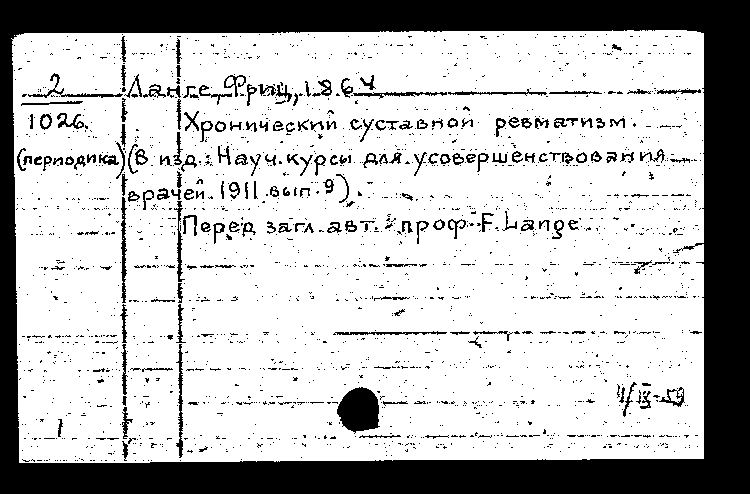 2 Ланге, Фриц, 1864
1026. Хронический суставной ревматизм.
(периодика) (В изд.: Науч. курсы для усовершенствования
врачей. 1911. вып. 9).
Перед загл. авт.: проф. F. Lange.
4/IX-59
1